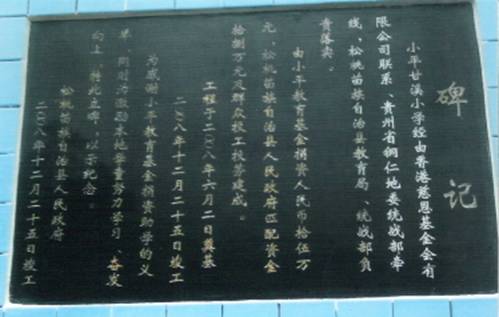 碑记
小平甘溪小学经由香港慈恩基金会有
限公司联系、贵州省铜仁地委统战部牵
线、松桃苗族自治县教育局、统战部负
责落实。
由小平教育基金捐资人民币拾伍万
元、松桃苗族自治县人民政府匹配资金
拾捌万元及群众投工投劳建成。
工程于二〇〇八年六月二日奠基
二〇〇八年十二月二十五日竣工
为感谢小平教育基金捐资助学的义
举、同时为激励本地学童努力学习、奋发
向上、特此立碑，以示纪念。
松桃苗族自治县人民政府
二〇〇八年十二月二十五日竣工